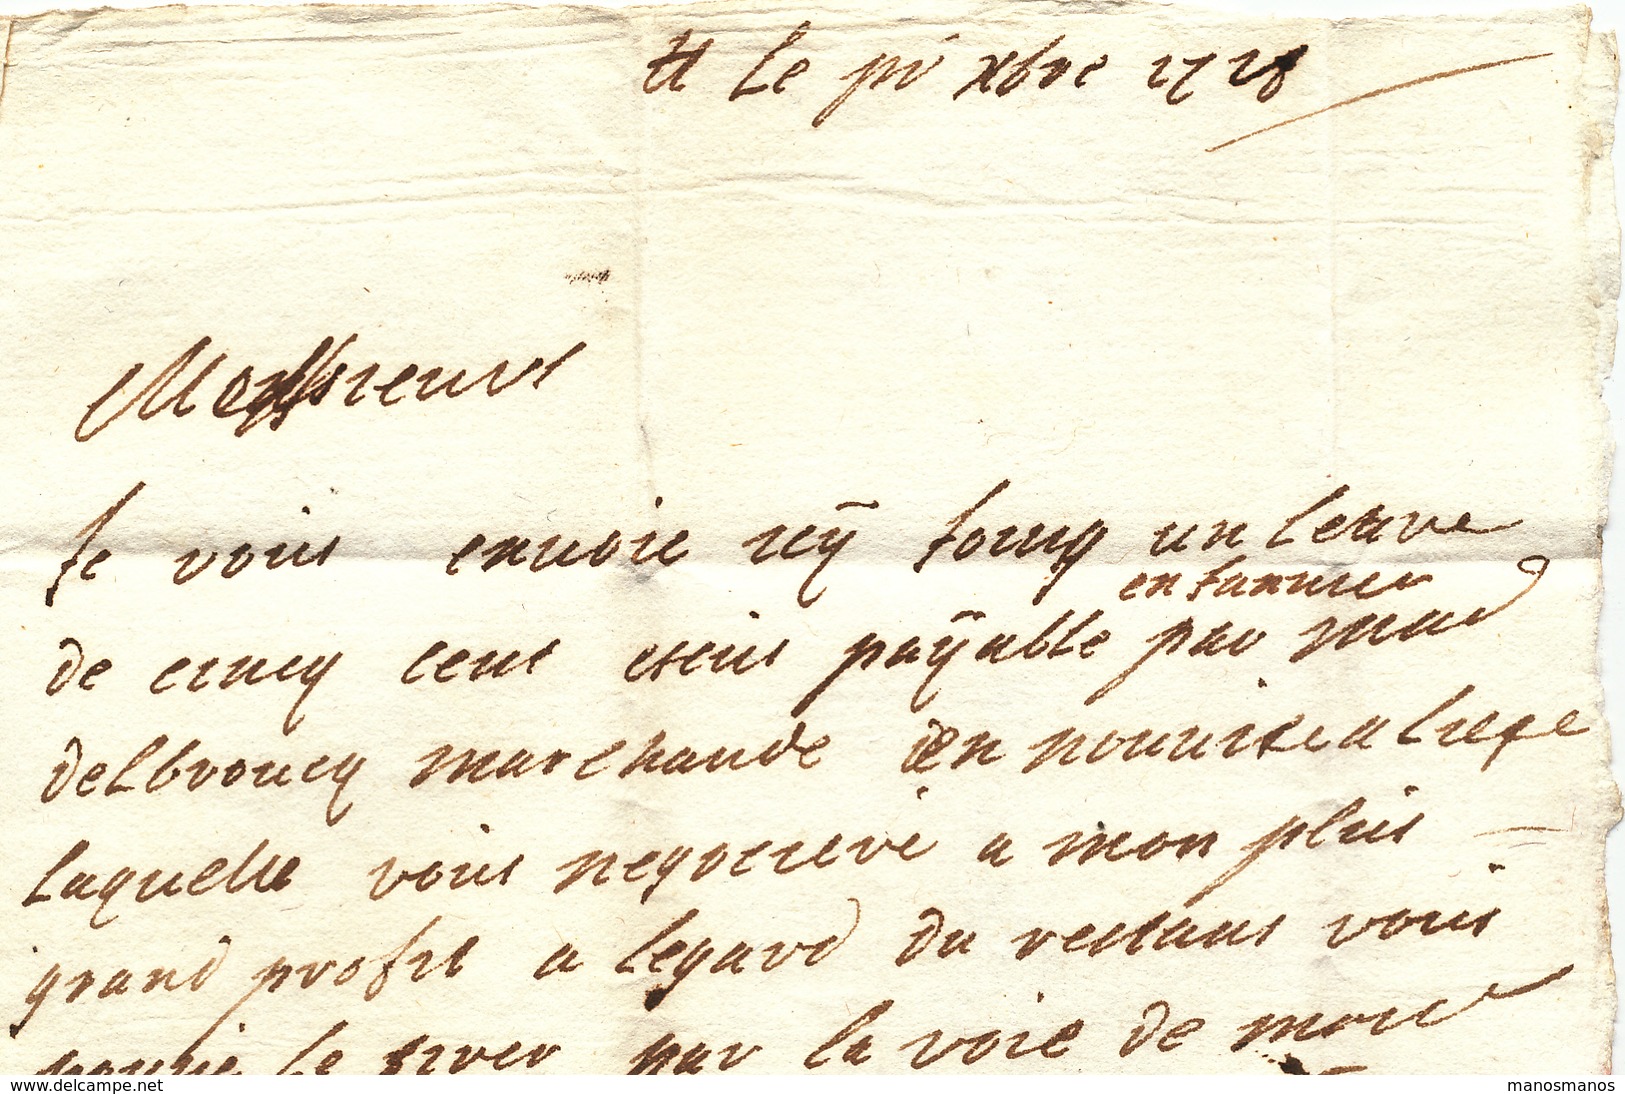 H le pr xbre 1728
Messieurs
Je vous envoie icÿ joinq un letre
en janvier
de cincq cent escus paÿable par mad
delbroucq marchande en nouvise a liege
laquelle vous negocieré a mon plus
grand profit a legard du restans vous
pouvé le tirer par la voie de monr
www.delcampe.net
manosmanos